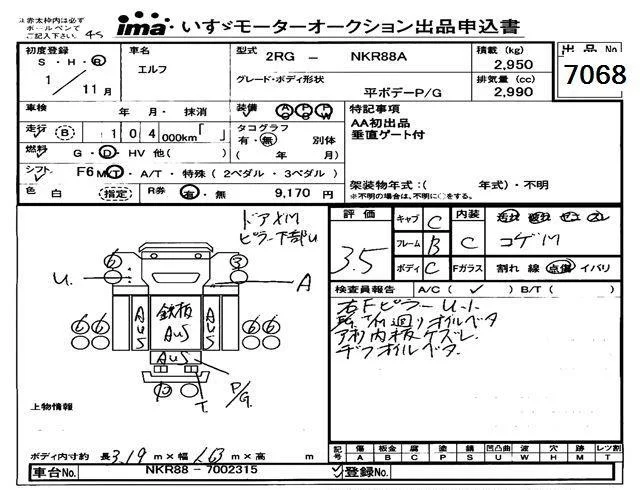 いすゞモーターオークション出品申込書
ima
※赤太枠内は必ず
ボールペンで
ご記入下さい。
4S
初度登録
S・H・R
1／11月
車名
エルフ
型式 2RG － NKR88A
グレード・ボディ形状
平ボデーP/G
積載 (kg)
2,950
排気量 (cc)
2,990
出品No
7068
車検 年 月・抹消
装備 A/C P/S P/W
特記事項
AA初出品
垂直ゲート付
走行 B 104 000km「 」
タコグラフ
有・無 別体
( 年 月)
燃料 G・D・HV 他( )
シフト F6 M/T・A/T・特殊(2ペダル・3ペダル)
架装物年式:( 年式)・不明
※不明の場合は、不明に○をする。
色 白 (指定) R券 有・無 9,170 円
ドアXM
ピラー下部U
評価
3.5
キャブ C
フレーム B
ボディ C
内装 C
コゲM
Fガラス 割れ 線 点傷 イバリ
検査員報告 A/C( ✓ ) B/T( )
右FピラーU.
オイルベタ
内板ケズレ
デフオイルベタ
6
U
A
6 6
AUS
鉄板
AUS
AUS
6 6
AUS
P/G
T
上物情報
ボディ内寸約 長 3.19 m×幅 1.63 m×高 m
記号 傷 板金 腐 塗 錆 凹凸曲 波 穴 跡 レツ割
A B C P S U W H M T
車台No. NKR88 - 7002315
登録No.